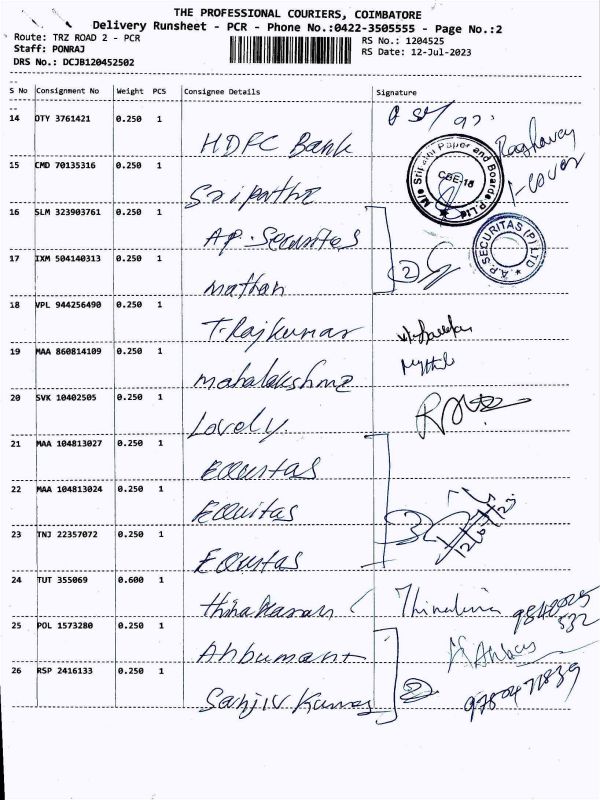 THE PROFESSIONAL COURIERS, COIMBATORE
Delivery Runsheet - PCR - Phone No.:0422-3505555 - Page No.:2
Route: TRZ ROAD 2 - PCR
RS No.: 1204525
Staff: PONRAJ
RS Date: 12-Jul-2023
DRS No.: DCJB120452502
S No Consignment No Weight PCS Consignee Details Signature
14 OTY 3761421 0.250 1
HDFC Bank
15 CMD 70135316 0.250 1
Sripathi
Raghavan
1-cover
M/s Sripathi Paper and Boards P Ltd
CBE-18
16 SLM 323903761 0.250 1
A.P. Securitas
A.P. SECURITAS (P) LTD
17 IXM 504140313 0.250 1
Mathan
2
18 VPL 944256490 0.250 1
T. Rajkumar
19 MAA 860814109 0.250 1
Mahalakshmi
20 SVK 10402505 0.250 1
Lovely
21 MAA 104813027 0.250 1
Equitas
22 MAA 104813024 0.250 1
Equitas
3
23 TNJ 22357072 0.250 1
Equitas
24 TUT 355069 0.600 1
Thinakaran
25 POL 1573280 0.250 1
Anbumani
26 RSP 2416133 0.250 1
Sanjiv Kumar
2